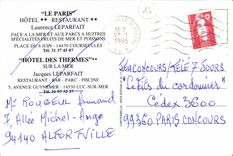 "LE PARIS"
HÔTEL ★★ RESTAURANT
Laurence LEPARFAIT
FACE A LA MER ET AUX PARCS A HUITRES
SPÉCIALITÉS FRUITS DE MER ET POISSONS
PLACE DU 6 JUIN - 14470 COURSEULLES
Tél. 31 37 45 07
"HÔTEL DES THERMES"
SUR LA MER
Jacques LEPARFAIT
RESTAURANT - BAR - PARC - PISCINE
5, AVENUE GUYNEMER - 14530 LUC-SUR-MER
Tél. 31 97 32 37
Mr ROUGEUL Armand
7, Allée Michel-Ange
94140 ALFORTVILLE
16
BEACONCOURS/TELE 7 JOURS
"Le Fils du Cordonnier"
Cedex 3600
99360 PARIS CONCOURS